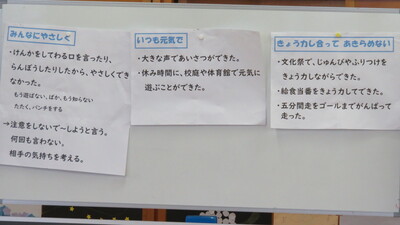 みんなにやさしく
・けんかをしてわる口を言ったり、
らんぼうしたりしたから、やさしくでき
なかった。
もう遊ばない、ばか、もう知らない
たたく、パンチをする
→注意をしないで～しようと言う。
何回も言わない。
相手の気持ちを考える。
いつも元気で
・大きな声であいさつができた。
・休み時間に、校庭や体育館で元気に
遊ぶことができた。
きょう力し合って あきらめない
・文化祭で、じゅんびやふりつけを
きょう力しながらできた。
・給食当番をきょう力してできた。
・五分間走をゴールまでがんばって
走った。